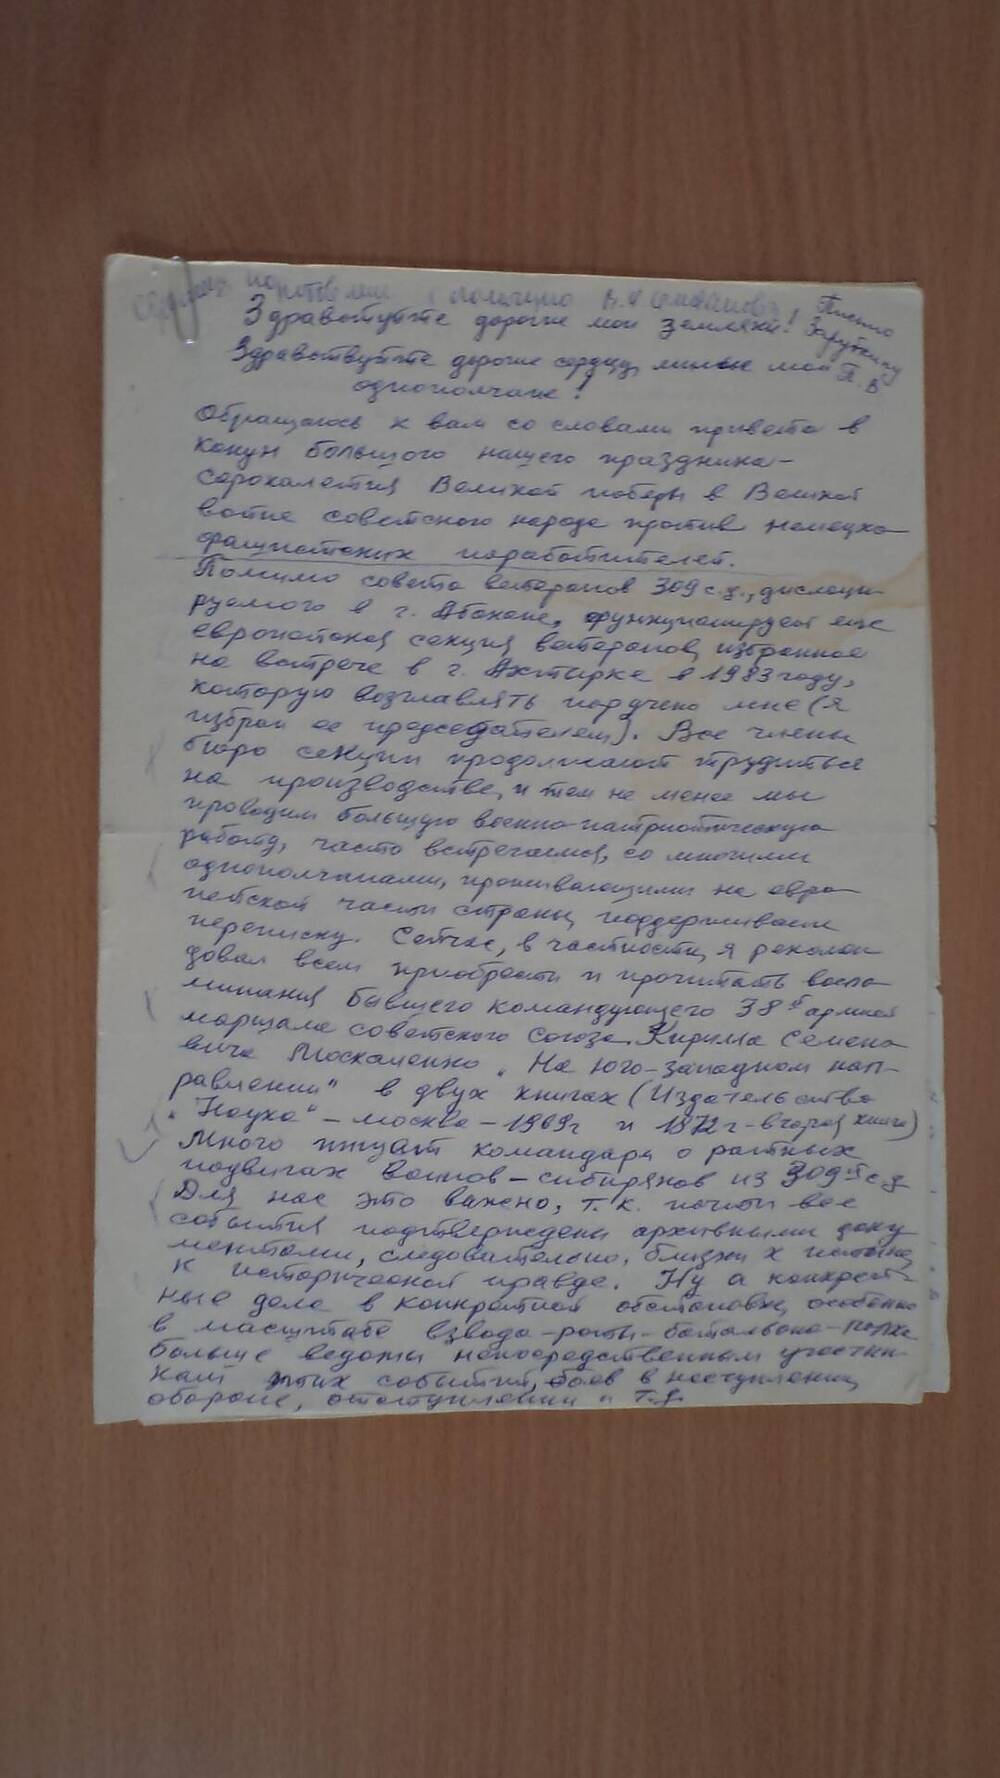 Здравствуйте дорогие мои земляки!
Письмо
Зарубину
П. В
Здравствуйте дорогие сердцу, милые мои
однополчане!
Обращаюсь к вам со словами привета в
канун большого нашего праздника-
сорокалетия Великой победы в Великой
войне советского народа против немецко
фашистских поработителей.
Помимо совета ветеранов 309 с.д., дислоци-
руемого в г. Абакане, функционирует еще
европейская секция ветеранов, избранное
на встрече в г. Ахтырке в 1983 году,
которую возглавлять поручено мне (я
избран ее председателем). Все члены
бюро секции продолжают трудиться
на производстве, и тем не менее мы
проводим большую военно-патриотическую
работу, часто встречаемся, со многими
однополчанами, проживающими на евро-
пейской части страны, поддерживаем
переписку. Сейчас, в частности, я рекомен
довал всем приобрести и прочитать воспо-
минания бывшего командующего 38й армией
маршала советского союза Кирила Семено
вича Москаленко „На юго-западном нап-
равлении" в двух книгах (Издательство
„Наука" - москва - 1969г и 1972г - вторая книга)
Много пишет командарм о ратных
подвигах воинов-сибиряков из 309й с.д
Для нас это важно, т.к. почти все
события подтверждены архивными доку
ментами, следовательно, близки к истине,
к исторической правде. Ну а конкрет-
ные дела в конкретной обстановке, особенно
в масштабе взвода-роты-батальона-полка
больше ведомы непосредственным участни-
кам этих событий, боев в наступлении,
обороне, отступлении и т.д.